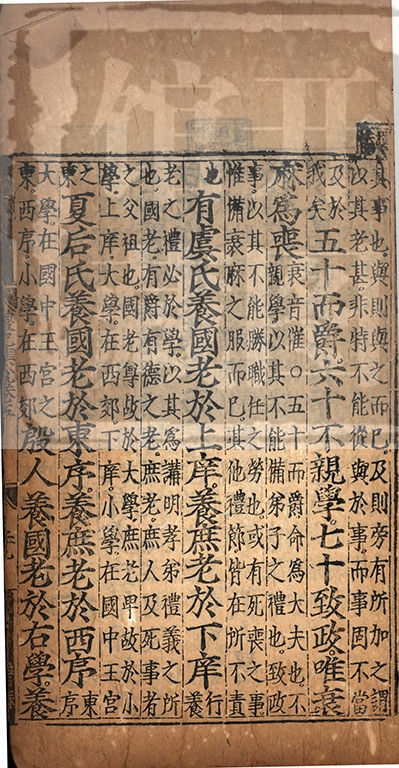 其事也。與則與之而已。及則旁有所加之謂。
以其老甚。非特不能從與於事。而事固不當
及於
我矣
五十而爵。六十不親學。七十致政。唯衰
麻為喪
衰音催。○五十而爵。命為大夫也。不
親學。以其不能備弟子之禮也。致政
事。以其不能勝職任之勞也。或有死喪之事
惟備衰麻之服而已。其他禮節皆在所不責
也
有虞氏養國老於上庠。養庶老於下庠
行
養
老之禮。必於學。以其為講明孝弟禮義之所
也。國老。有爵有德之老。庶老。庶人及死事者
之父祖也。國老尊。故於大學。庶老卑。故於小
學。上庠。大學。在西郊。下庠。小學。在國中王宮
之
東
夏后氏養國老於東序。養庶老於西序
東
序
大學。在國中王宮之
東。西序。小學。在西郊。
殷人養國老於右學。養